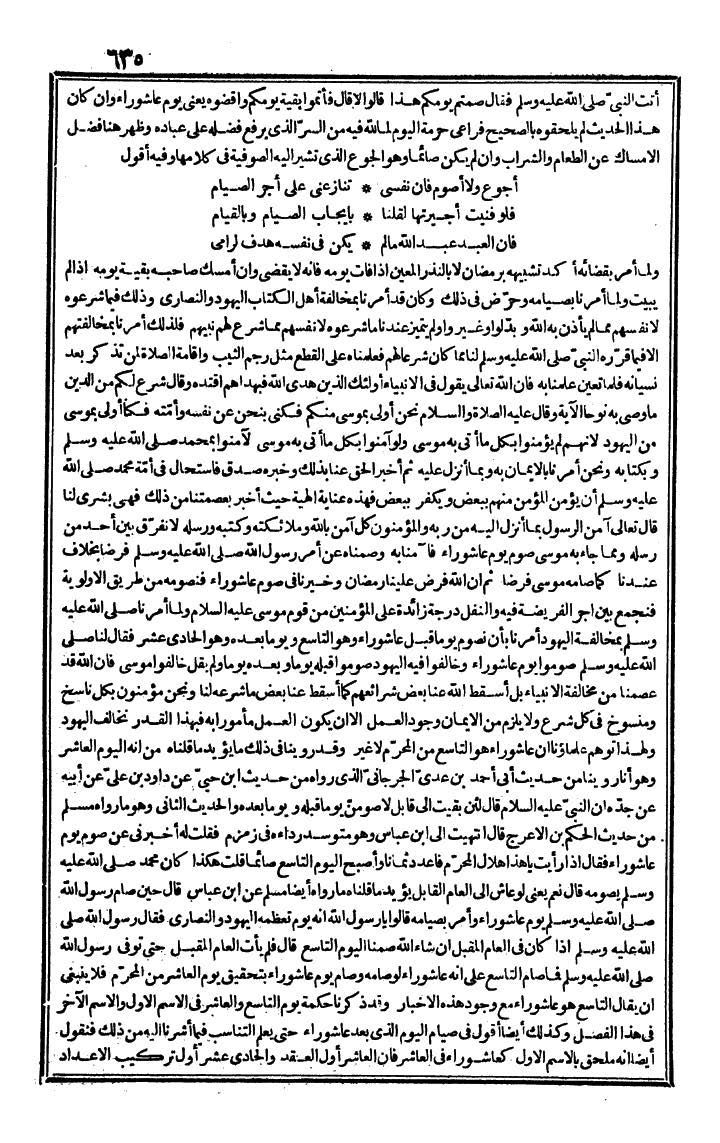 ٦٣٥
أتت النبيّ صلى الله عليه وسلم فقال صمتم يومكم هذا قالوا لا قال فأتموا بقية يومكم واقضوه يعنى يوم عاشوراء وان كان
هذا الحديث لم يلحقوه بالصحيح فراعى حرمة اليوم لما لله فيه من السرّ الذى يرفع فضله على عباده وظهر هنا فضل
الامساك عن الطعام والشراب وان لم يكن صائما وهو الجوع الذى تشير اليه الصوفية فى كلامها وفيه أقول
أجوع ولا أصوم فان نفسى * تنازعنى على أجر الصيام
فلو فنيت أجيرتها لقلنا * بايجاب الصيام وبالقيام
فان العبد عبد الله مالم * يكن فى نفسه هدف لرامى
ولما أمر بقضائه أكد تشبيهه برمضان لا بالنذر المعين اذا فات يومه فانه لا يقضى وان أمسك صاحبه بقية يومه اذا لم
يبيت ولما أمرنا بصيامه وحرّض فى ذلك وكان قد أمرنا بمخالفة أهل الكتاب اليهود والنصارى وذلك فيما شرعوه
لانفسهم مما لم يأذن به الله وبدّلوا وغيروا ولم يتميز عندنا ما شرعوه لانفسهم مما شرع لهم نبيهم فلذلك أمرنا بمخالفتهم
الا فيما قرّره النبىّ صلى الله عليه وسلم لنا مما كان شرعا لهم فعلمناه على القطع مثل رجم الثيب واقامة الصلاة لمن تذكر بعد
نسيانه فلما تعين علمنا به فان الله تعالى يقول فى الانبياء أولئك الذين هدى الله فبهداهم اقتده وقال شرع لكم من الدين
ما وصى به نوحا الآية وقال عليه الصلاة والسلام نحن أولى بموسى منكم فكنى بنحن عن نفسه وأمّته فكنا أولى بموسى
من اليهود لانهم لم يؤمنوا بكل ما أتى به موسى ولو آمنوا بكل ما أتى به موسى لآمنوا بمحمد صلى الله عليه وسلم
وبكتابه ونحن أمرنا بالايمان به وبما أنزل عليه ثم أخبر الحق عنا بذلك وخبره صدق فاستحال فى أمّة محمد صلى الله
عليه وسلم أن يؤمن المؤمن منهم ببعض ويكفر ببعض فهذه عناية الهية حيث أخبر بعصمتنا من ذلك فهى بشرى لنا
قال تعالى آمن الرسول بما أنزل اليه من ربه والمؤمنون كل آمن بالله وملائكته وكتبه ورسله لا نفرّق بين أحد من
رسله ومما جاء به موسى صوم يوم عاشوراء فآمنا به وصمناه عن أمر رسول الله صلى الله عليه وسلم فرضا بخلاف
عندنا كما صامه موسى فرضا ثم ان الله فرض علينا رمضان وخيرنا فى صوم عاشوراء فنصومه من طريق الاولوية
فنجمع بين أجر الفريضة فيه والنفل درجة زائدة على المؤمنين من قوم موسى عليه السلام ولما أمرنا صلى الله عليه
وسلم بمخالفة اليهود أمرنا بأن نصوم يوما قبل عاشوراء وهو التاسع ويوما بعده وهو الحادى عشر فقال لنا صلى
الله عليه وسلم صوموا يوم عاشوراء وخالفوا فيه اليهود صوموا قبله يوما وبعده يوما ولم يقل خالفوا موسى فان الله قد
عصمنا من مخالفة الانبياء بل أسقط الله عنا بعض شرائعهم كما أسقط عنا بعض ما شرعه لنا ونحن مؤمنون بكل ناسخ
ومنسوخ فى كل شرع ولا يلزم من الايمان وجود العمل الا ان يكون العمل مأمورا به فبهذا القدر نخالف اليهود
ولهذا توهم علماؤنا ان عاشوراء هو التاسع من المحرّم لا غير وقد روينا فى ذلك ما يؤيد ما قلناه من انه اليوم العاشر
وهو أنا روينا من حديث أبى أحمد بن عدىّ الجرجانىّ الذى رواه من حديث ابن حيىّ عن داود بن علىّ عن أبيه
عن جدّه ان النبىّ عليه السلام قال لئن بقيت الى قابل لاصومنّ يوما قبله ويوما بعده والحديث الثانى وهو ما رواه مسلم
من حديث الحكم بن الاعرج قال انتهيت الى ابن عباس وهو متوسد رداءه فى زمزم فقلت له أخبرنى عن صوم يوم
عاشوراء فقال اذا رأيت يا هذا هلال المحرّم فاعدد ثمانا وأصبح اليوم التاسع صائما قلت هكذا كان محمد صلى الله عليه
وسلم يصومه قال نعم يعنى لو عاش الى العام القابل يؤيد ما قلناه ما رواه أيضا مسلم عن ابن عباس قال حين صام رسول الله
صلى الله عليه وسلم يوم عاشوراء وأمر بصيامه قالوا يا رسول الله انه يوم تعظمه اليهود والنصارى فقال رسول الله صلى
الله عليه وسلم اذا كان فى العام المقبل ان شاء الله صمنا اليوم التاسع قال فلم يأت العام المقبل حتى توفى رسول الله
صلى الله عليه وسلم فما صام التاسع على انه عاشوراء لو صامه وصام يوم عاشوراء بتحقيق يوم العاشر من المحرّم فلا ينبغى
ان يقال التاسع هو عاشوراء مع وجود هذه الاخبار وقد ذكرنا حكمة يوم التاسع والعاشر فى الاسم الاول والاسم الآخر
فى هذا الفصل وكذلك أيضا أقول فى صيام اليوم الذى بعد عاشوراء حتى يعلم التناسب فيما أشرنا اليه من ذلك فنقول
أيضا انه ملحق بالاسم الاول كعاشوراء فى العاشر فان العاشر أول العقد والحادى عشر أول تركيب الاعداد